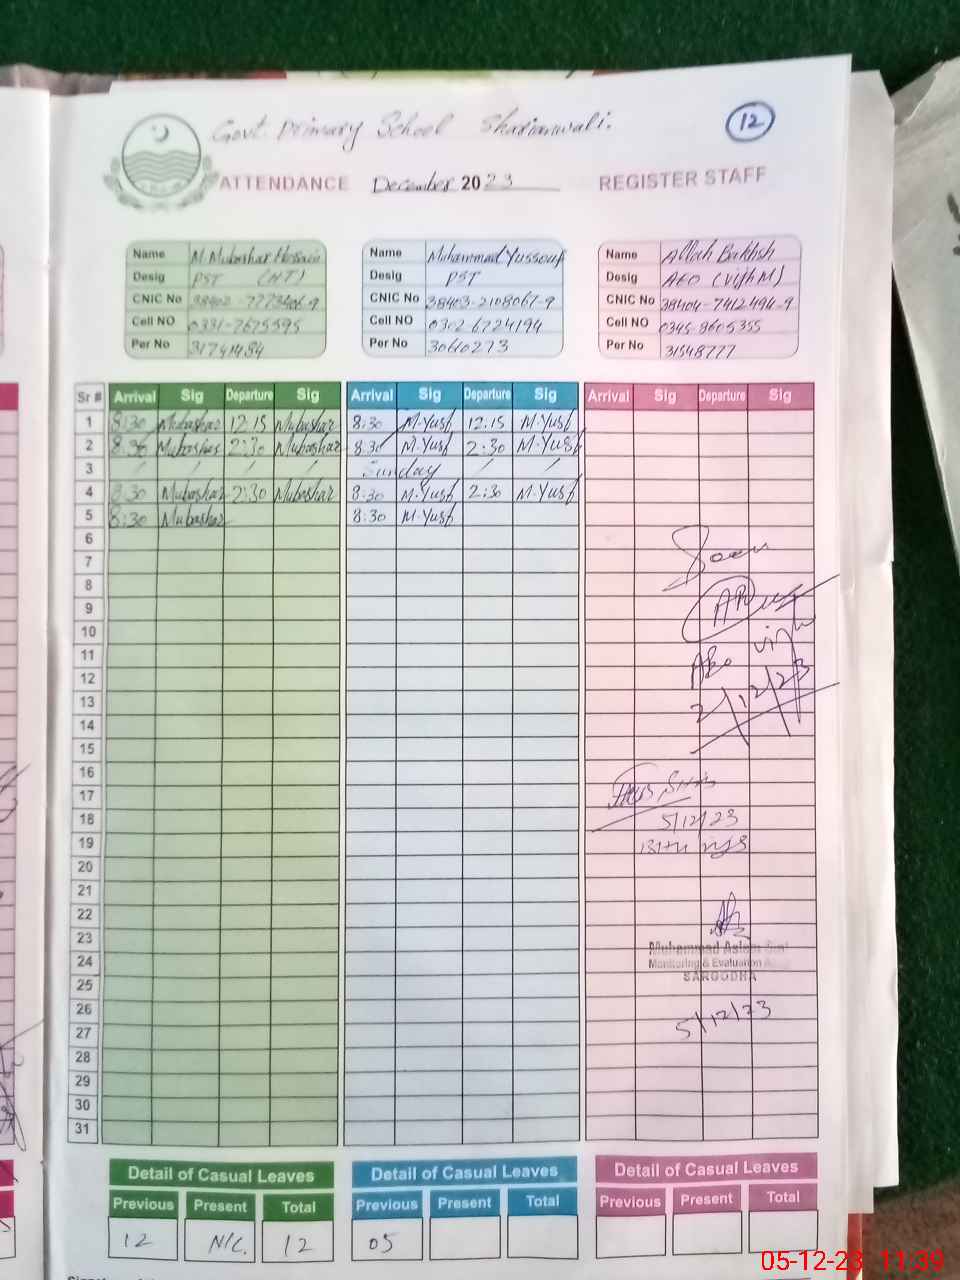 Govt. Primary School Sharianwali.
12
ATTENDANCE December 2023 REGISTER STAFF
Name M. Mubashar Hussain
Desig PST (HT)
CNIC No 38402-7773406-9
Cell NO 0331-7675595
Per No 31741484
Name Muhammad Yussouf
Desig PST
CNIC No 38403-2108067-9
Cell NO 0302 6724194
Per No 30610273
Name Allah Bakhsh
Desig AEO (Vijh M)
CNIC No 38404-7412494-9
Cell NO 0345-8605355
Per No 31548777
Sr # Arrival Sig Departure Sig Arrival Sig Departure Sig Arrival Sig Departure Sig
1 8:30 Mubashar 12:15 Mubashar 8:30 M.Yusf 12:15 M.Yusf
2 8:30 Mubashar 2:30 Mubashar 8:30 M.Yusf 2:30 M.Yusf
3 / / / / Sunday / /
4 8:30 Mubashar 2:30 Mubashar 8:30 M.Yusf 2:30 M.Yusf
5 8:30 Mubashar 8:30 M.Yusf
6
7 Seen
8
9
10
11
12 AEO Vijh
13 2/12/23
14
15
16
17
18 5/12/23
19
20
21
22
23 Muhammad Aslam
24 Monitoring & Evaluation
25 SARGODHA
26
27 5/12/23
28
29
30
31
Detail of Casual Leaves Detail of Casual Leaves Detail of Casual Leaves
Previous Present Total Previous Present Total Previous Present Total
12 N/L. 12 05
05-12-23 11:39